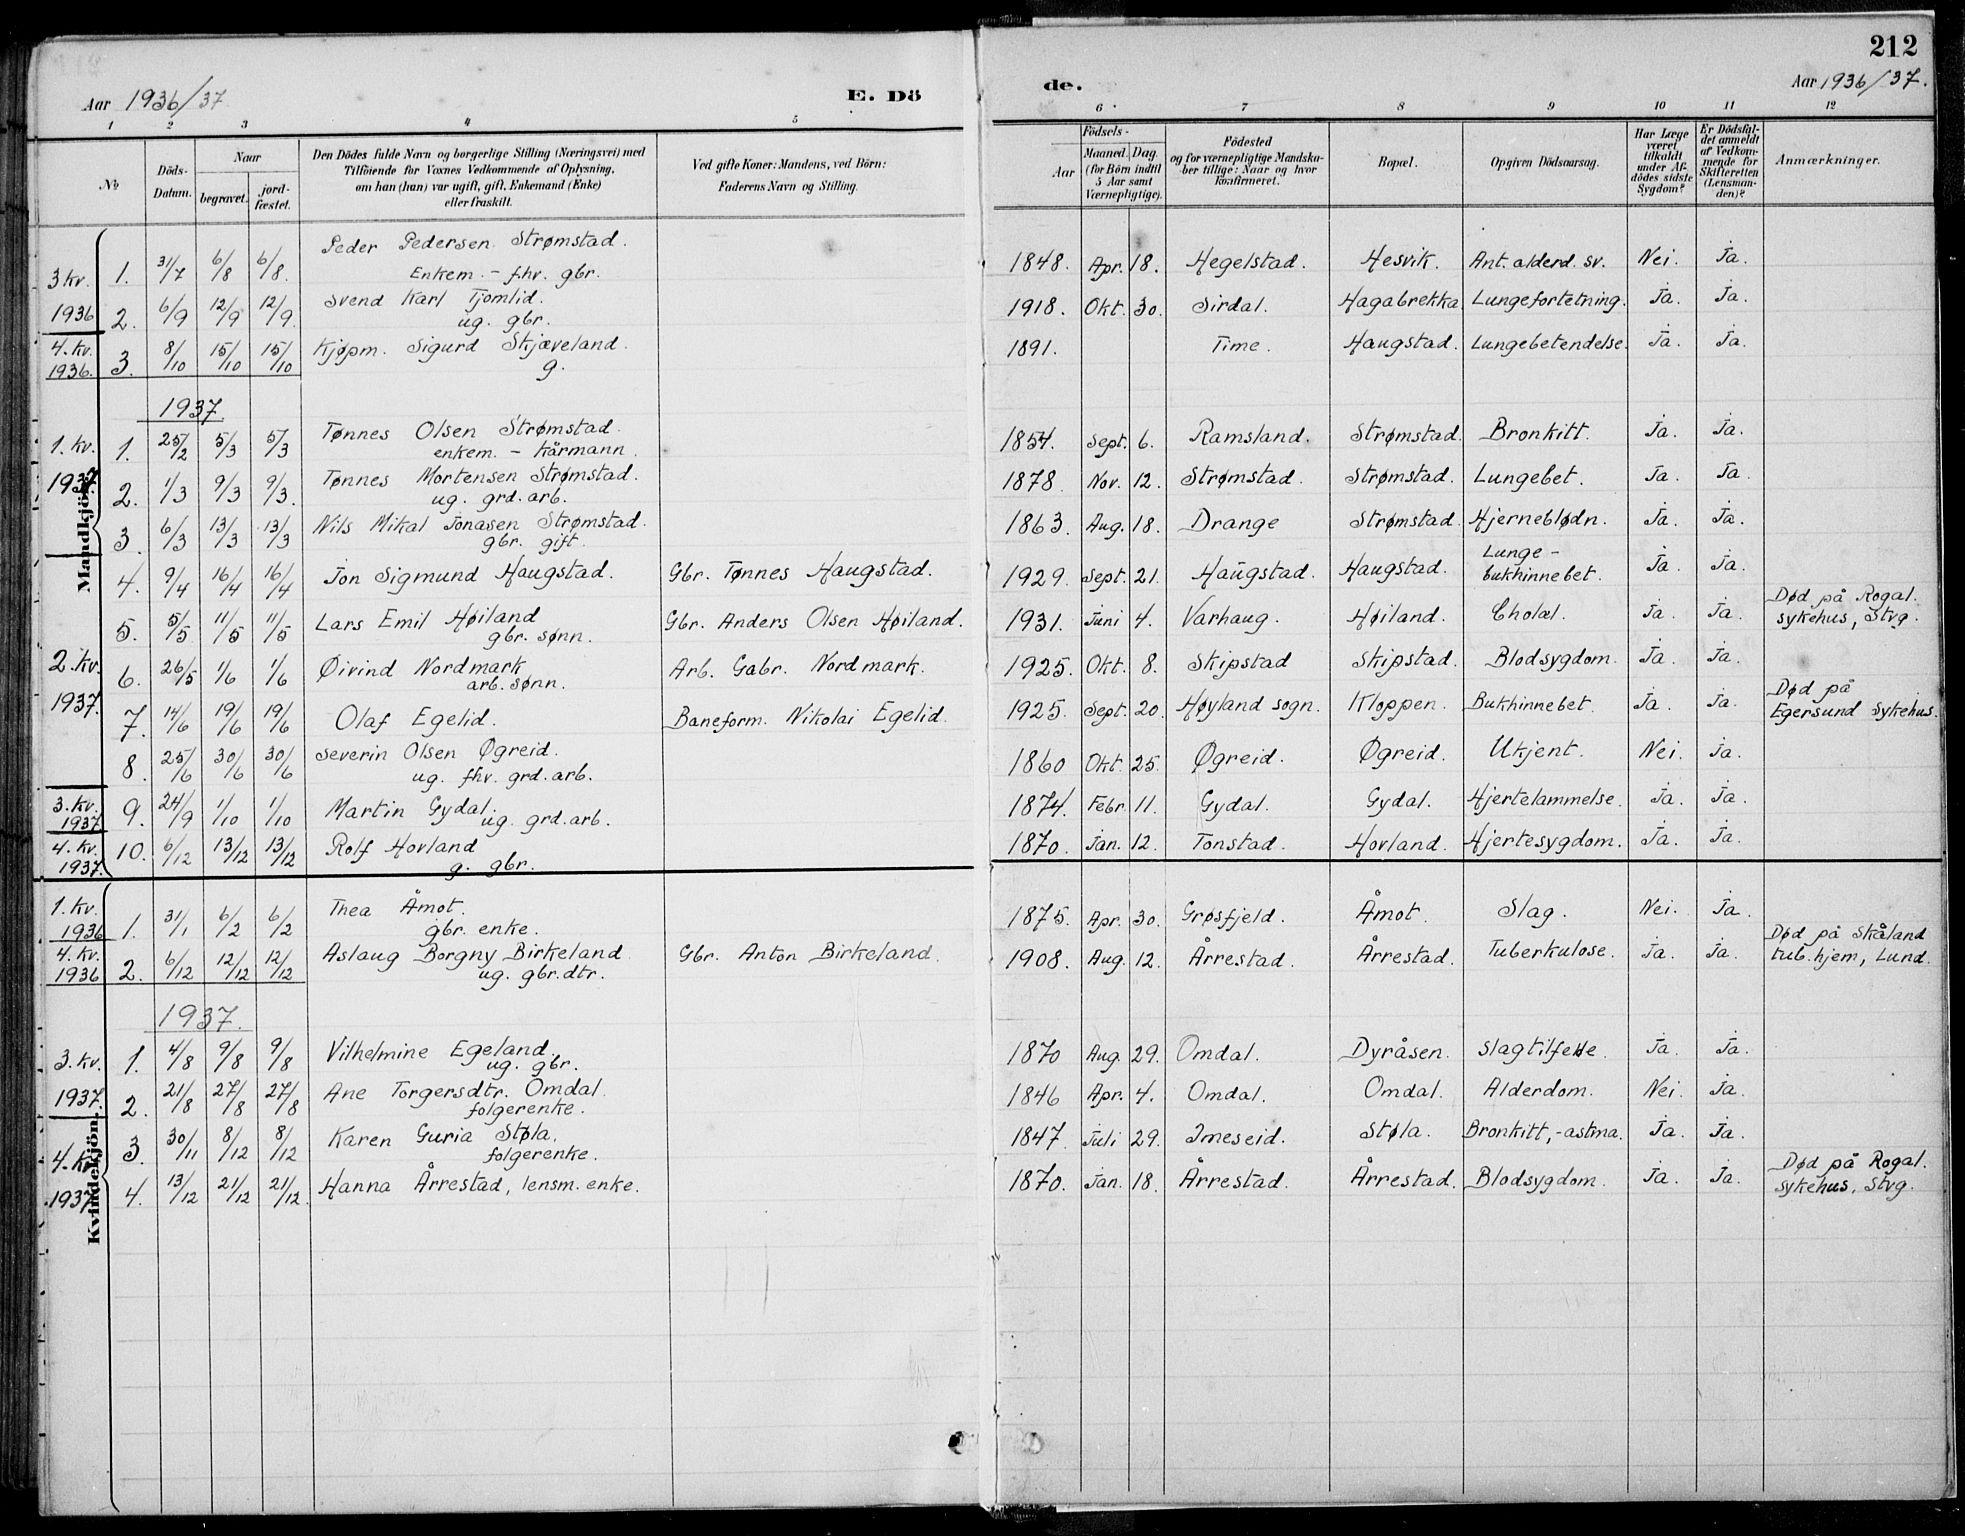 212
Aar 1936/37
E. Dö
de.
Aar 1936/37.
1 2 3 4 5 6 7 8 9 10 11 12
No
Döds-
Datum.
Naar
begravet.
jord-
fæstet.
Den Dödes fulde Navn og borgerlige Stilling (Næringsvei) med
Tilföiende for Voxnes Vedkommende af Oplysning,
om han (hun) var ugift, gift, Enkemand (Enke)
eller fraskilt.
Ved gifte Koner: Mandens, ved Börn:
Faderens Navn og Stilling.
Födsels-
Aar
Maaned. Dag.
(for Börn indtil
5 Aar samt
Værnepligtige).
Födested
og for værnepligtige Mandska-
ber tillige: Naar og hvor
konfirmeret.
Bopæl.
Opgiven Dödsaarsag.
Har Læge
været
tilkaldt
under Af-
dödes sidste
Sygdom?
Er Dödsfal-
det anmeldt
af Vedkom-
mende for
Skifteretten
(Lensman-
den)?
Anmærkninger.
Mandkjön.
3 kv. 1936
1. 31/7 6/8 6/8. Peder Pedersen Strømstad.
Enkem. - fhv. gbr. 1848. Apr. 18. Hegelstad. Hesvik. Ant. alderd. sv. Nei. Ja.
2. 6/9 12/9 12/9. Svend Karl Tjomlid.
ug. gbr. 1918. Okt. 30. Sirdal. Hagabrekka Lungefortetning. Ja. Ja.
4. kv. 1936.
3. 8/10 15/10 15/10 Kjøpm. Sigurd Skjæveland.
g. 1891. Time. Haugstad. Lungebetendelse. Ja. Ja.
1937.
1. kv. 1937
1. 25/2 5/3 5/3 Tønnes Olsen Strømstad.
enkem. - kårmann. 1854. Sept. 6. Ramsland. Strømstad. Bronkitt. Ja. Ja.
2. 1/3 9/3 9/3. Tønnes Mortensen Strømstad.
ug. grd. arb. 1878. Nov. 12. Strømstad. Strømstad. Lungebet. Ja. Ja.
3. 6/3 13/3 13/3 Nils Mikal Jonasen Strømstad.
gbr. gift. 1863. Aug. 18. Drange Strømstad. Hjerneblødn. Ja. Ja.
4. 9/4 16/4 16/4 Jon Sigmund Haugstad. Gbr. Tønnes Haugstad. 1929. Sept. 21. Haugstad. Haugstad. Lunge-
bukhinnebet. Ja. Ja.
5. 5/5 11/5 11/5 Lars Emil Høiland
gbr. sønn. Gbr. Anders Olsen Høiland. 1931. Juni 4. Varhaug. Høiland. Cholæl. Ja. Ja. Død på Rogal.
sykehus, Stvg.
2. kv. 1937.
6. 26/5 1/6 1/6 Øivind Nordmark
arb. sønn. Arb. Gabr. Nordmark. 1925. Okt. 8. Skipstad Skipstad. Blodsygdom. Ja. Ja.
7. 14/6 19/6 19/6 Olaf Egelid. Baneform. Nikolai Egelid. 1925. Sept. 20. Høyland sogn. Kloppen. Bukhinnebet. Ja. Ja. Død på
Egersund sykehus.
8. 25/6 30/6 30/6 Severin Olsen Øgreid.
ug. fhv. grd. arb. 1860 Okt. 25. Øgreid. Øgreid. Ukjent. Nei. Ja.
3. kv. 1937
9. 24/9 1/10 1/10 Martin Gydal.
ug. grd. arb. 1874. Febr. 11. Gydal. Gydal. Hjertelammelse. Ja. Ja.
4. kv. 1937.
10. 6/12 13/12 13/12 Rolf Hovland
g. gbr. 1870. Jan. 12. Tonstad. Hovland. Hjertesygdom. Ja. Ja.
Kvindekjön.
1. kv. 1936
1. 31/1 6/2 6/2 Thea Åmot.
gbr. enke. 1875. Apr. 30. Grøsfjeld. Åmot. Slag. Nei. Ja.
4. kv. 1936
2. 6/12 12/12 12/12 Aslaug Borgny Birkeland
ug. gbr. dtr. Gbr. Anton Birkeland. 1908. Aug. 12. Årrestad. Årrestad. Tuberkulose. Ja. Ja. Død på Skåland
tub. hjem, Lund.
1937.
3. kv. 1937.
1. 4/8 9/8 9/8 Vilhelmine Egeland.
ug. gbr. 1870 Aug. 29. Omdal. Dyråsen. Slagtilfelle. Ja. Ja.
2. 21/8 27/8 27/8 Ane Torgersdtr. Omdal.
folgerenke. 1846 Apr. 4. Omdal. Omdal. Alderdom. Nei. Ja.
4. kv. 1937.
3. 30/11 8/12 8/12 Karen Guria Støla.
folgerenke. 1847. Juli 29. Imeseid. Støla. Bronkitt, - astma. Ja. Ja.
4. 13/12 21/12 21/12. Hanna Årrestad, lensm. enke. 1870. Jan. 18. Årrestad. Årrestad. Blodsygdom. Ja. Ja. Død på Rogal.
sykehus, Stvg.